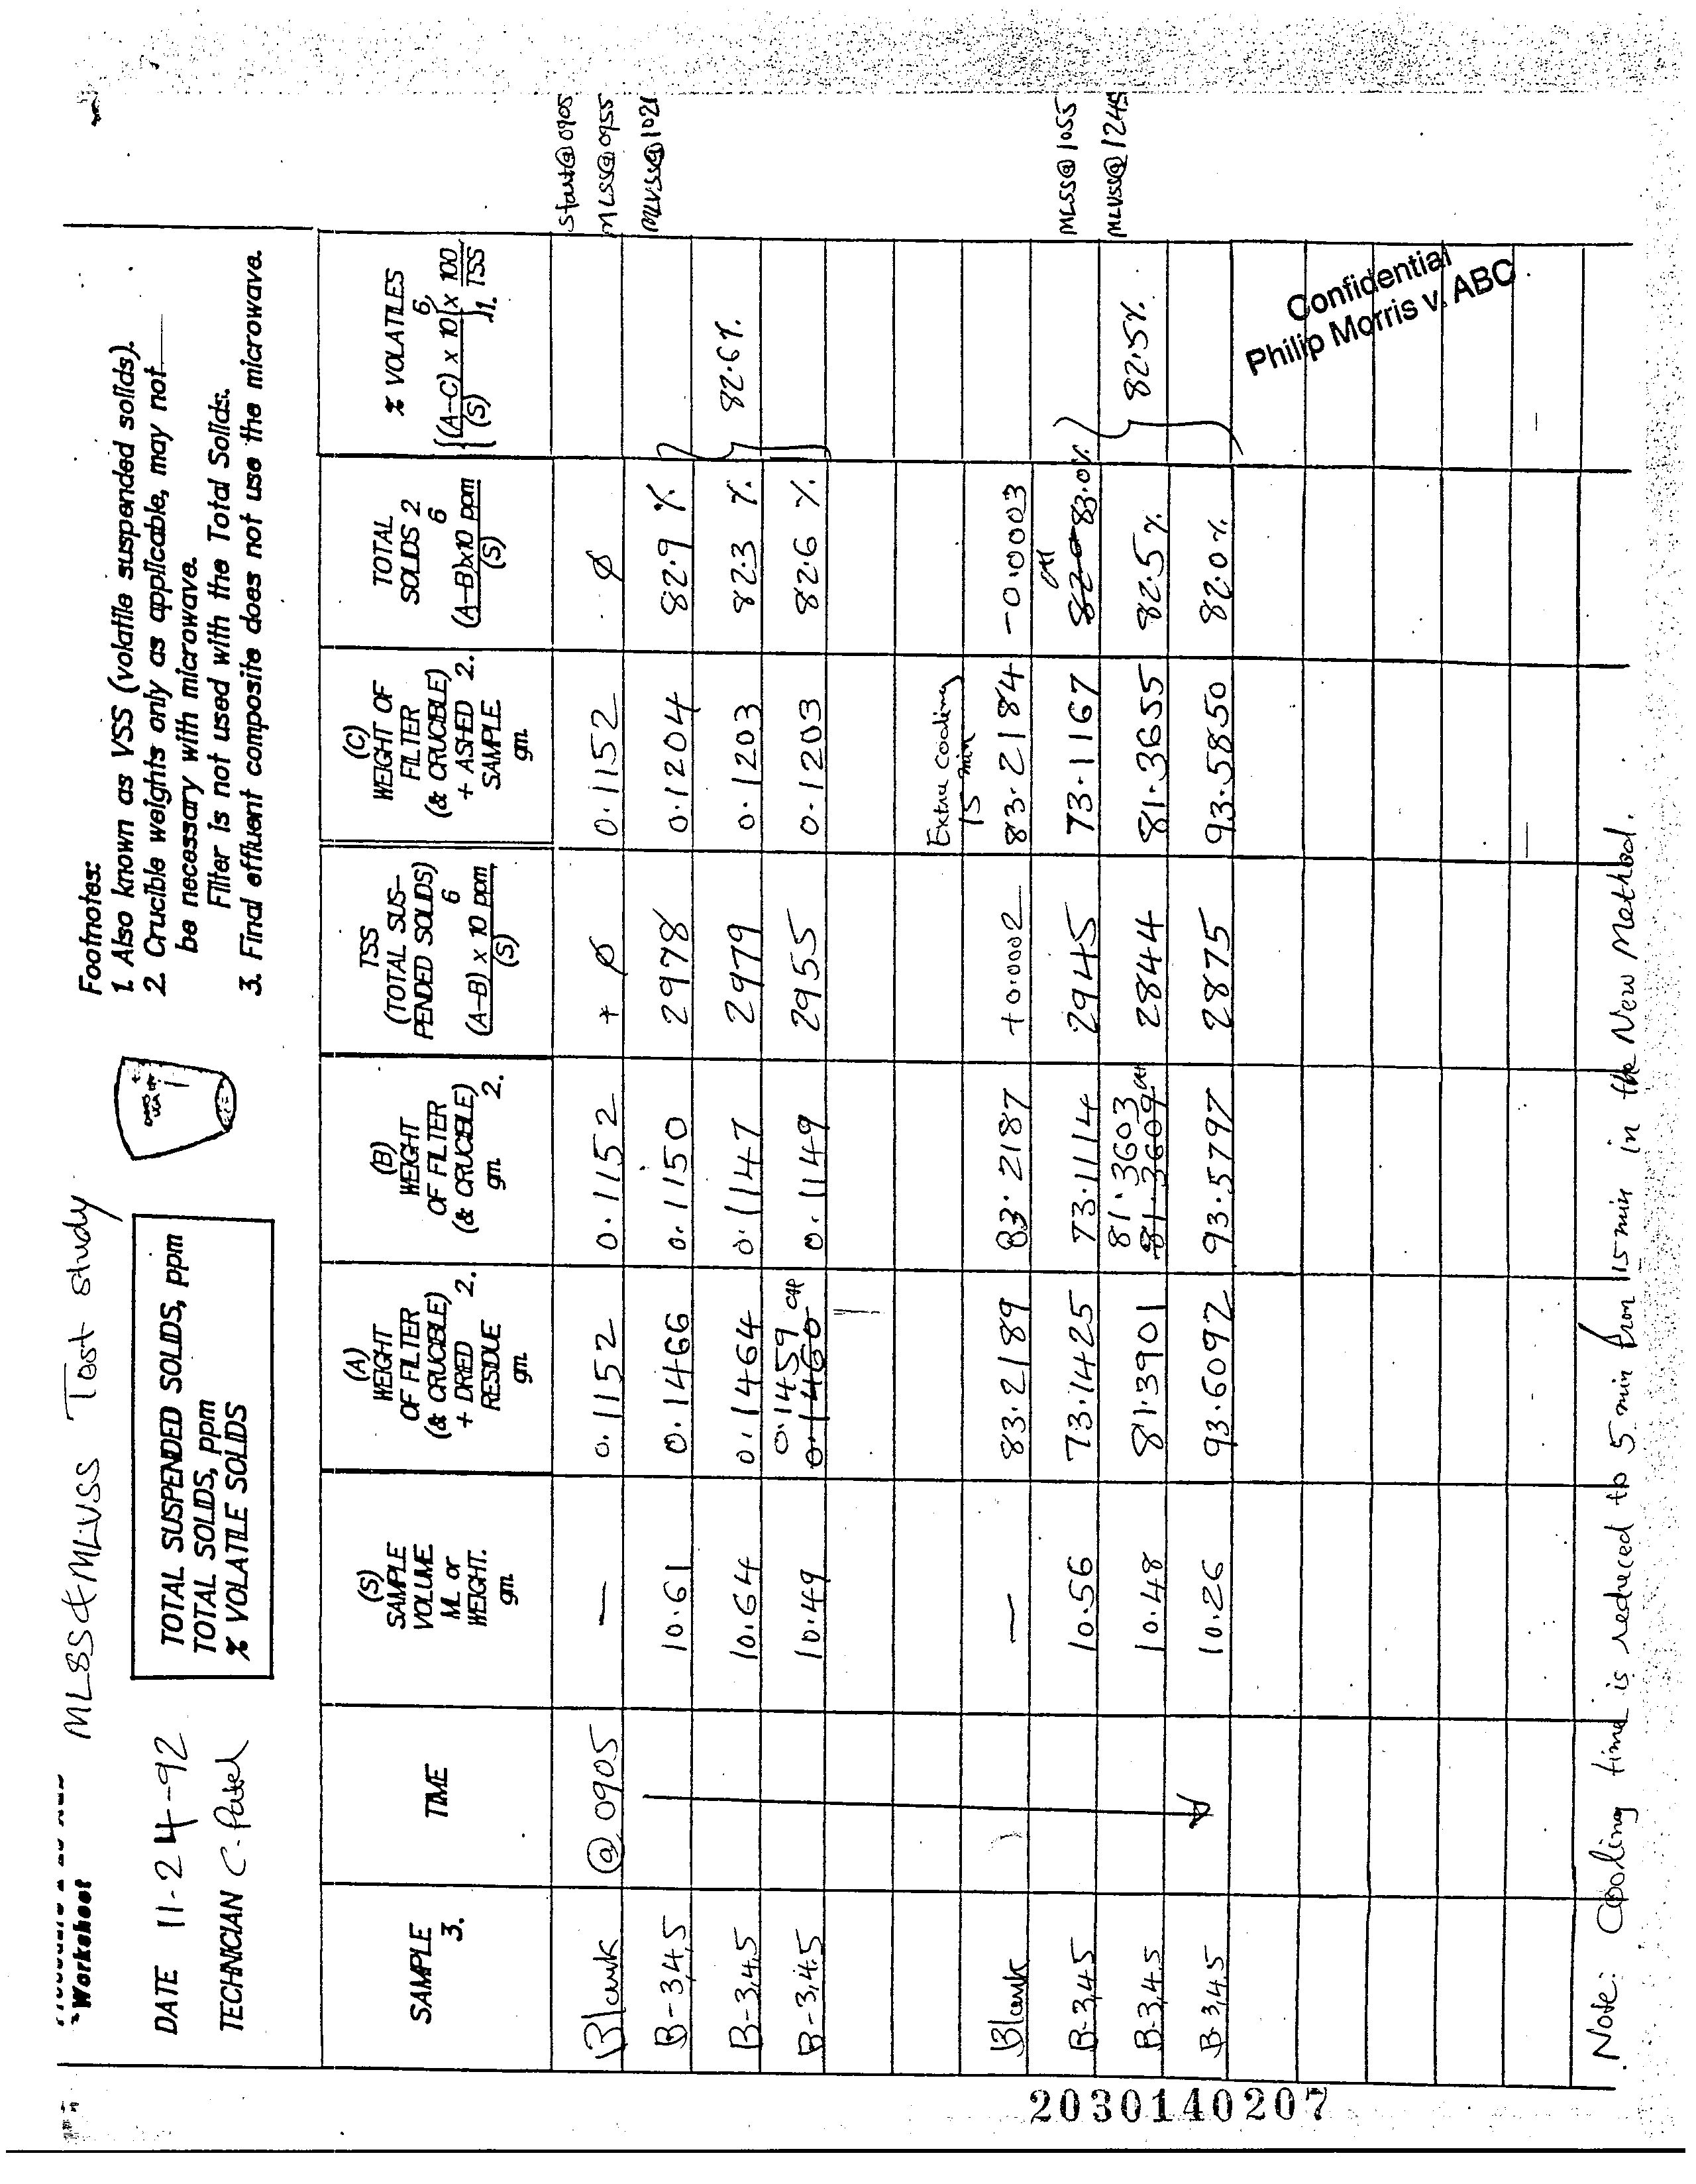 Worksheet
MLSS & MLVSS Test study
DATE 11-24-92
TECHNICIAN C. Patel
TOTAL SUSPENDED SOLIDS, ppm
TOTAL SOLIDS, ppm
% VOLATILE SOLIDS
Footnotes:
1. Also known as VSS (volatile suspended solids).
2. Crucible weights only as applicable, may not
be necessary with microwave.
Filter is not used with the Total Solids.
3. Final effluent composite does not use the microwave.
SAMPLE 3.
TIME
(S) SAMPLE VOLUME ML or WEIGHT. gm
(A) WEIGHT OF FILTER (& CRUCIBLE) + DRIED 2. RESIDUE gm
(B) WEIGHT OF FILTER (& CRUCIBLE) 2. gm
TSS (TOTAL SUS- PENDED SOLIDS) (A-B) x 10 6 ppm (S)
(C) WEIGHT OF FILTER (& CRUCIBLE) + ASHED 2. SAMPLE gm
TOTAL SOLIDS 2 (A-B)x10 6 ppm (S)
% VOLATILES {(A-C) x 10 6 (S)} x 100 TSS 1.
Blank @ 0905 — 0.1152 0.1152 + ø 0.1152 ø Start @ 0905
MLSS @ 0955
B-3,4,5 10.61 0.1466 0.1150 2978 0.1204 82.9 % MLVSS @ 1021
B-3,4,5 10.64 0.1464 0.1147 2979 0.1203 82.3 % 82.6%
B-3,4,5 10.49 0.1459 0.1460 CAP 0.1149 2955 0.1203 82.6 %
Extra cooling
15 min
Blank — 83.2189 83.2187 +0.0002 83.2184 -0.0003
B-3,4,5 10.56 73.1425 73.1114 2945 73.1167 83.0% MLSS @ 1055
B-3,4,5 10.48 81.3901 81.3603 81.3609 2844 81.3655 82.5% 82.5% MLVSS @ 1245
B-3,4,5 10.26 93.6092 93.5797 2875 93.5850 82.0%
Confidential
Philip Morris v. ABC
Note: Cooling time is reduced to 5 min from 15 min in the New Method.
2030140207